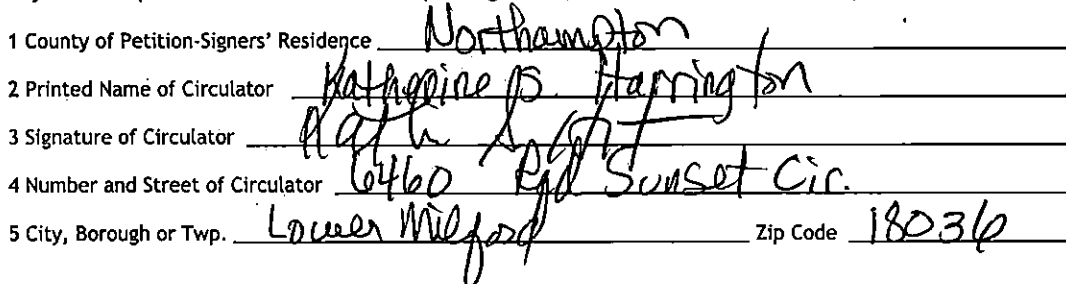 1 County of Petition-Signers' Residence Northampton
2 Printed Name of Circulator Katherine S. Harrington
3 Signature of Circulator
4 Number and Street of Circulator 6460 Red Sunset Cir.
5 City, Borough or Twp. Lower Milford Zip Code 18036